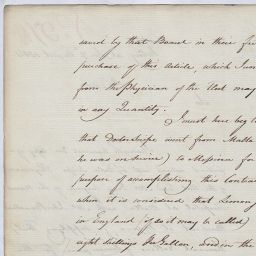 sured by that Board in their
purchase of this Article, which I
from the Physician of the Fleet may
in any Quantity.
I must here beg
that Doctor Snipe went from Malta
he was on Service) to Messina for
purpose of accomplishing this Contract
when it is considered that Lemon
in England (if so it may be called)
eight Shillings Per Gallon, and in the